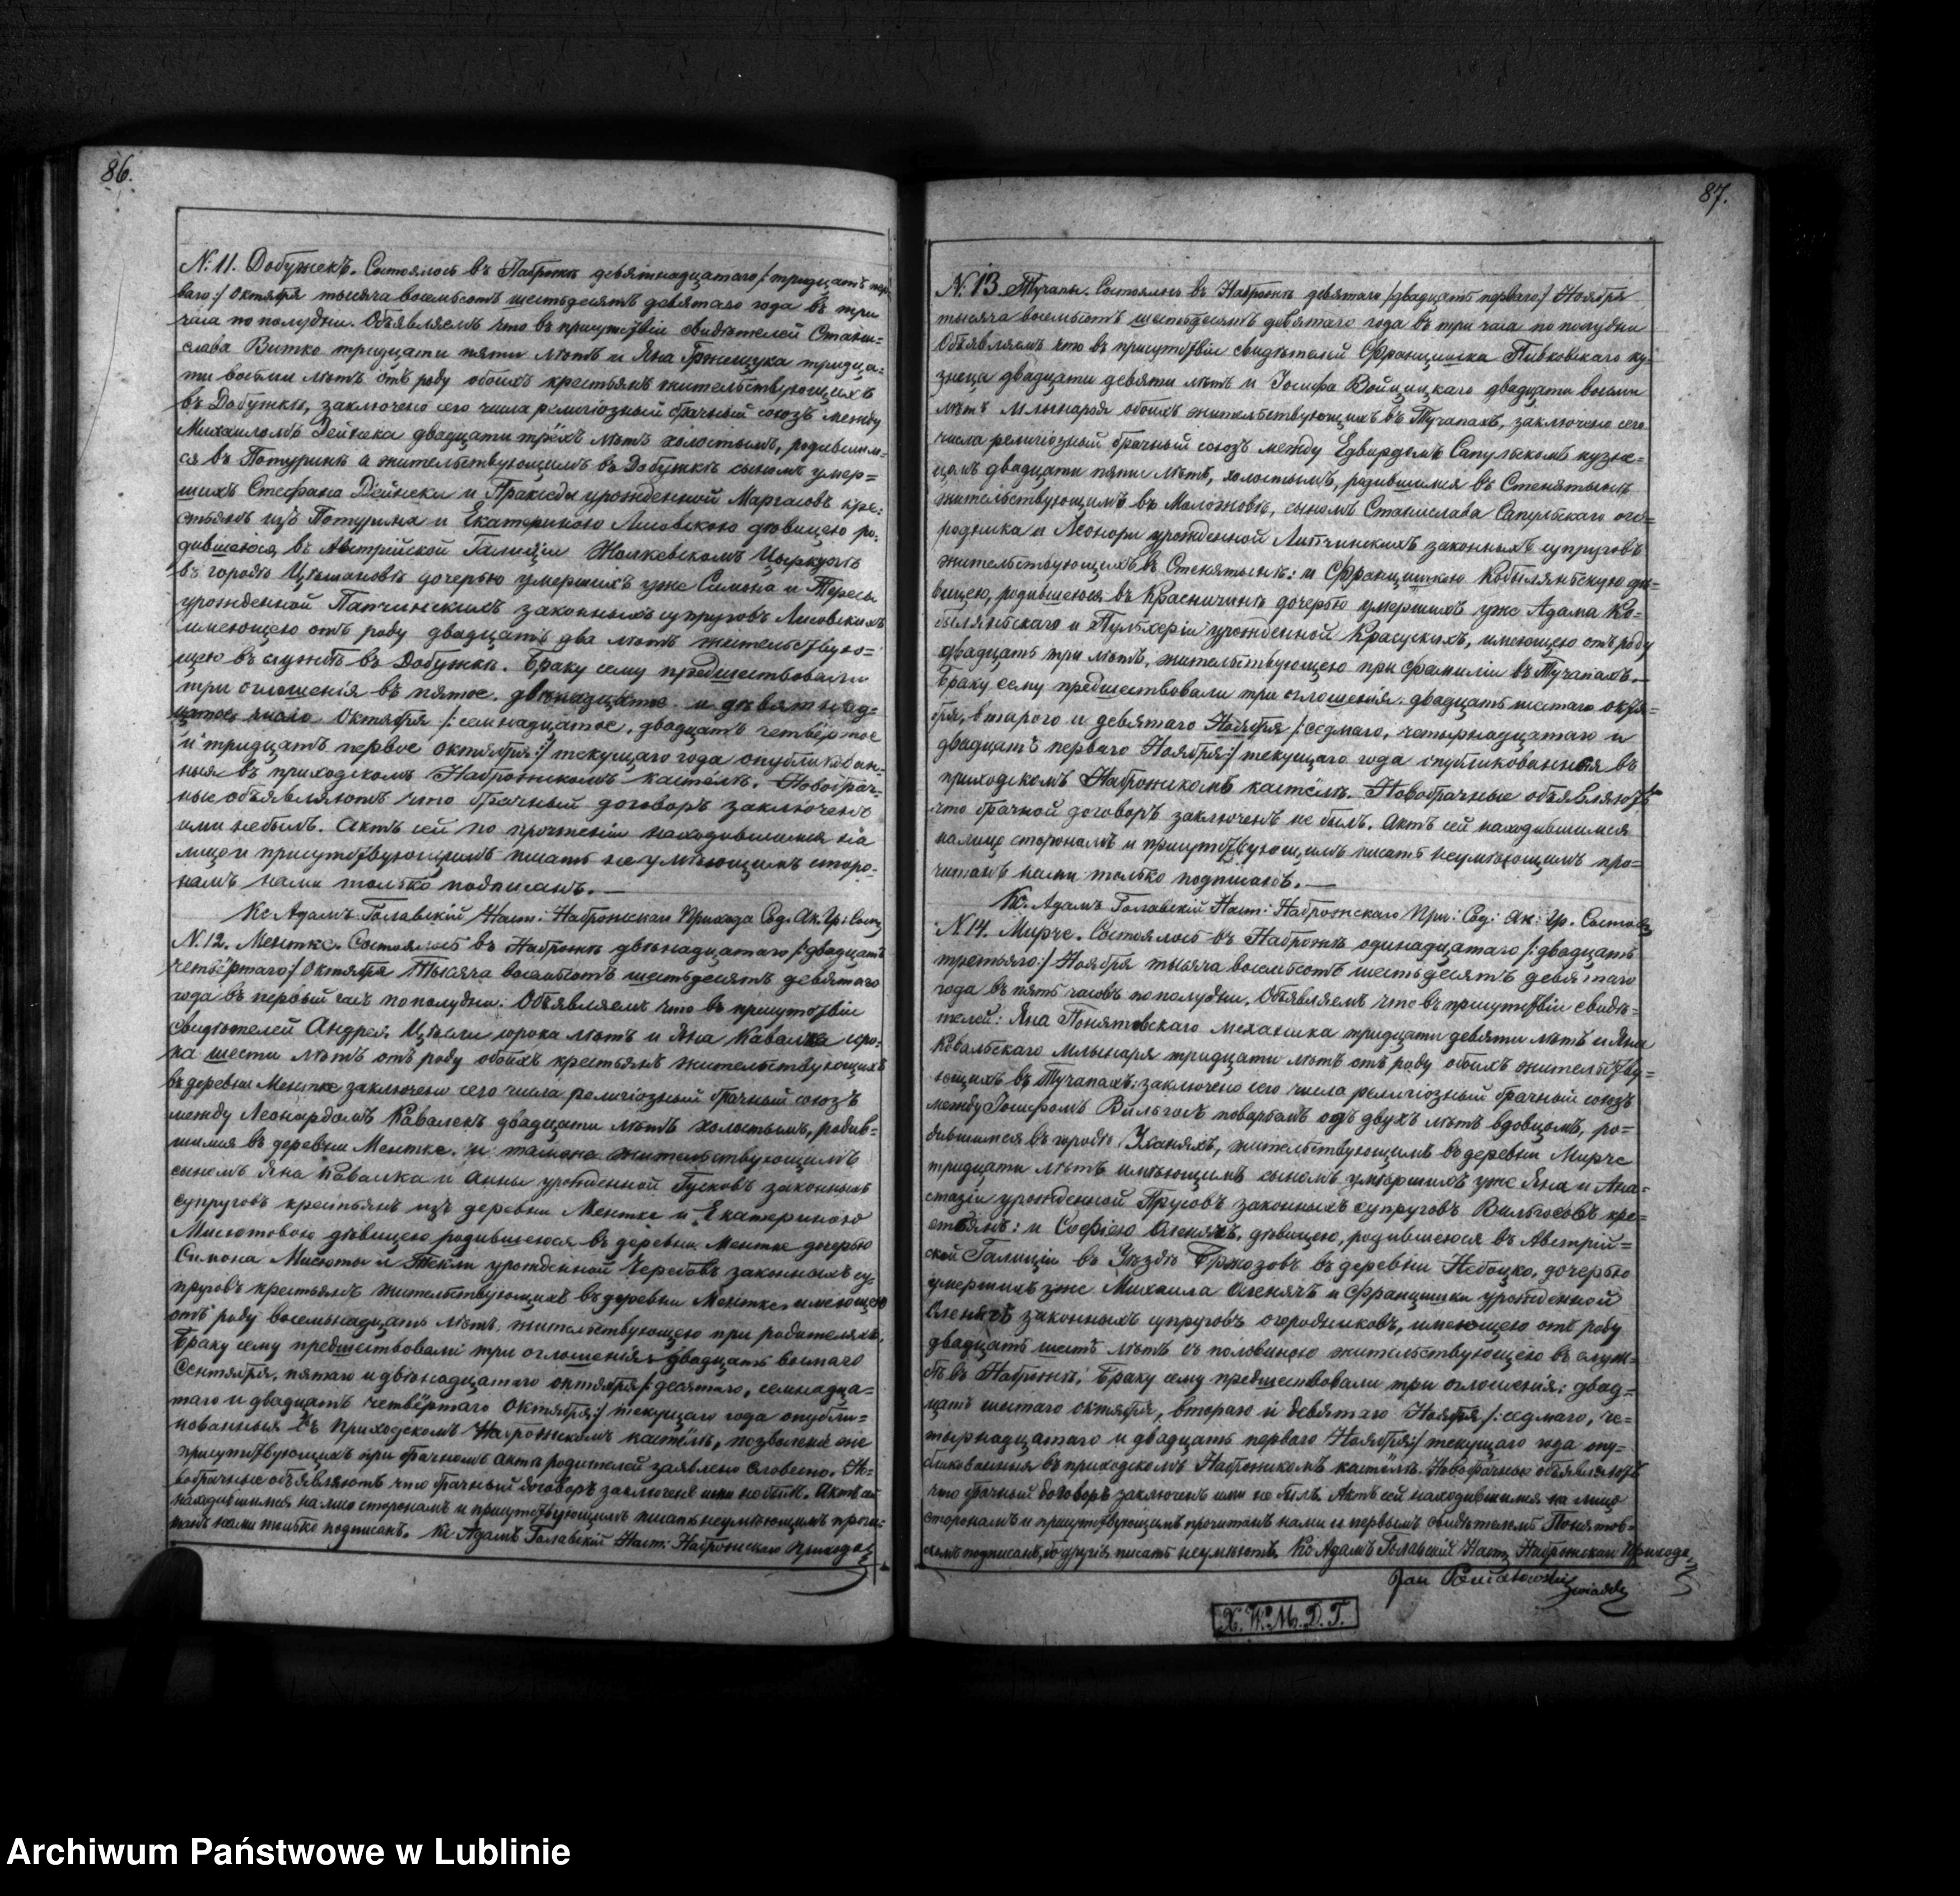 86.
N. 11. Добужекъ. Состоялось въ Наброжѣ девятнадцатаго /: тридцать пер-
ваго :/ Октября тысяча восемьсотъ шестьдесятъ девятаго года въ три
часа по полудни. Объявляемъ что въ присутствіи свидѣтелей Стани-
слава Витко тридцати пяти лѣтъ и Яна тридца-
ти восьми лѣтъ отъ роду обоихъ крестьянъ жительствующихъ
въ Добужкѣ, заключенъ сего числа религіозный брачный союзъ между
Михаиломъ Дейнека двадцати трёхъ лѣтъ холостымъ, родившим-
ся въ Потуринѣ а жительствующимъ въ Добужкѣ сыномъ умер-
шихъ Стефана Дейнеки и Пракседы урожденной Маргасовъ кре-
стьянъ изъ Потурина и Екатериною Лисовскою дѣвицею ро-
дившеюся въ Австрійской Галиціи Жолкевскомъ Цыркулѣ
въ городѣ Цѣшановѣ дочерью умершихъ уже Симона и Тересы
урожденной Папчинскихъ законныхъ супруговъ Лисовскихъ
имеющею отъ роду двадцать два лѣтъ жительствую-
щею въ службѣ въ Добужкѣ. Браку сему предшествовали
три оглошенія въ пятое, двѣнадцатое и девятнад-
цатое число Октября /: семнадцатое, двадцать четвёртое
и тридцать первое октября :/ текущаго года опубликован-
ныя въ приходскомъ Наброжскомъ костёлѣ. Новобрач-
ные объявляютъ что брачный договоръ заключенъ
ими небылъ. Актъ сей по прочтеніи находившимся на
лицо и присутствующимъ писать неумѣющимъ сторо-
намъ нами только подписанъ. —
Кс Адамъ Голавскій Наст: Наброжскаго Прихода Сод. Ак. Гр: Сост
N. 12. Ментке. Состоялось въ Наброжѣ двѣнадцатаго /: двадцать
четвёртаго :/ Октября Тысяча восемьсотъ шестьдесятъ девятаго
года въ первый часъ по полудни. Объявляемъ что въ присутствіи
свидѣтелей Андрея сорока лѣтъ и Яна Кавалка соро-
ка шести лѣтъ отъ роду обоихъ крестьянъ жительствующихъ
въ деревни Ментке заключенъ сего числа религіозный брачный союзъ
между Леонардомъ Кавалекъ двадцати лѣтъ холостымъ, родив-
шимся въ деревни Ментке. и тамже жительствующимъ
сыномъ Яна Кавалка и Анны урожденной Гусковъ законныхъ
супруговъ крестьянъ изъ деревни Ментке и Екатериною
Мисютовою дѣвицею родившеюся въ деревни Ментке дочерью
Симона Мисюты и Теклы урожденной законныхъ су-
пруговъ крестьянъ жительствующихъ въ деревни Ментке, имеющею
отъ роду восемьнадцать лѣтъ, жительствующею при родителяхъ.
Браку сему предшествовали три оглошенія двадцать восьмаго
Сентября, пятаго и двѣнадцатаго октября /: десятаго, семнадца-
таго и двадцать четвёртаго Октября :/ текущаго года опубли-
кованныя въ приходскомъ Наброжскомъ костёлѣ, позволеніе
присутствующихъ при брачномъ актѣ родителей заявлено словесно. Но-
вобрачные объявляютъ что брачный договоръ заключенъ ими небылъ. Актъ сей
находившимся на лицо сторонамъ и присутствующимъ писать неумѣющимъ прочи-
танъ нами только подписанъ. Кс Адамъ Голавскій Наст: Наброжскаго Прихода
87.
N. 13. Тучапы. Состоялось въ Наброжѣ девятаго /: двадцать перваго :/ Ноября
тысяча восемьсотъ шестьдесятъ девятаго года въ три часа по полудни
Объявляемъ что въ присутствіи свидѣтелей Францишка Пивковскаго ку-
знеца двадцати девяти лѣтъ и Іосифа Войцицкаго двадцати восьми
лѣтъ млынаря обоихъ жительствующихъ въ Тучапахъ, заключенъ сего
числа религіозный брачный союзъ между Едвардомъ Сапульскомъ кузне-
цомъ двадцати пяти лѣтъ, холостымъ, родившимся въ Стенятынѣ
жительствующимъ въ Моложовѣ, сыномъ Станислава Сапульскаго ого-
родника и Леоноры урожденной Липчинскихъ законныхъ супруговъ
жительствующихъ въ Стенятынѣ: и Францишкою Кобыляньскою дѣ-
вицею, родившеюся въ Красничинѣ дочерью умершихъ уже Адама Ко-
быляньскаго и Пульхеріи урожденной Красускихъ, имеющею отъ роду
двадцать три лѣтъ, жительствующею при фамиліи въ Тучапахъ. —
Браку сему предшествовали три оглошенія: двадцать шестаго октя-
бря, втораго и девятаго Ноября /: седмаго, четырнадцатаго и
двадцать перваго Ноября :/ текущаго года опубликованныя въ
приходскомъ Наброжскомъ костёлѣ. Новобрачные объявляютъ
что брачной договоръ заключенъ не былъ. Актъ сей находившимся
налицо сторонамъ и присутствующимъ писать неумѣющимъ про-
читанъ нами только подписанъ. —
Кс. Адамъ Голавскій Наст: Наброжскаго При: Сод: Ак: Гр. Состов
N 14. Мирче. Состоялось въ Наброжѣ одинадцатаго /: двадцать
третьяго :/ Ноября тысяча восемьсотъ шестьдесятъ девятаго
года въ пять часовъ по полудни. Объявляемъ что въ присутствіи свидѣ-
телей: Яна Понятовскаго механика тридцати девяти лѣтъ и Яна
Ковальскаго млынаря тридцати лѣтъ отъ роду обоихъ жительству-
ющихъ въ Тучапахъ: заключенъ сего числа религіозный брачный союзъ
между Іосифомъ Вильгосъ поваромъ одъ двухъ лѣтъ вдовцомъ, ро-
дившимся въ городѣ Уханяхъ, жительствующимъ въ деревни Мирче
тридцати лѣтъ имѣющимъ сыномъ умершихъ уже Яна и Ана-
стазіи урожденной Прусовъ законныхъ супруговъ Вильгосовъ кре-
стьянъ: и Софіею дѣвицею, родившеюся въ Австрій-
ской Галиціи въ Уѣздѣ Бржозовъ въ деревни Небоцко, дочерью
умершихъ уже Михаила и Францишки урожденной
законныхъ супруговъ огородниковъ, имеющею отъ роду
двадцать шесть лѣтъ съ половиною жительствующею въ служ-
бѣ въ Наброжѣ. Браку сему предшествовали три оглошенія: двад-
цать шестаго октября, втораго и девятаго Ноября /: седмаго, че-
тырнадцатаго и двадцать перваго Ноября :/ текущаго года опу-
бликованныя въ приходскомъ Наброжскомъ костёлѣ. Новобрачные объявляютъ
что брачный договоръ заключенъ ими не былъ. Актъ сей находившимся на лицо
сторонамъ и присутствующимъ прочитанъ нами и первымъ свидѣтелемъ Понятов-
скимъ подписанъ, бо другіе писать неумѣютъ. Кс Адамъ Голавскій Наст. Наброжскаго Прихода
Jan Poniatowski świadek
X. W. M. D. G.
Archiwum Państwowe w Lublinie